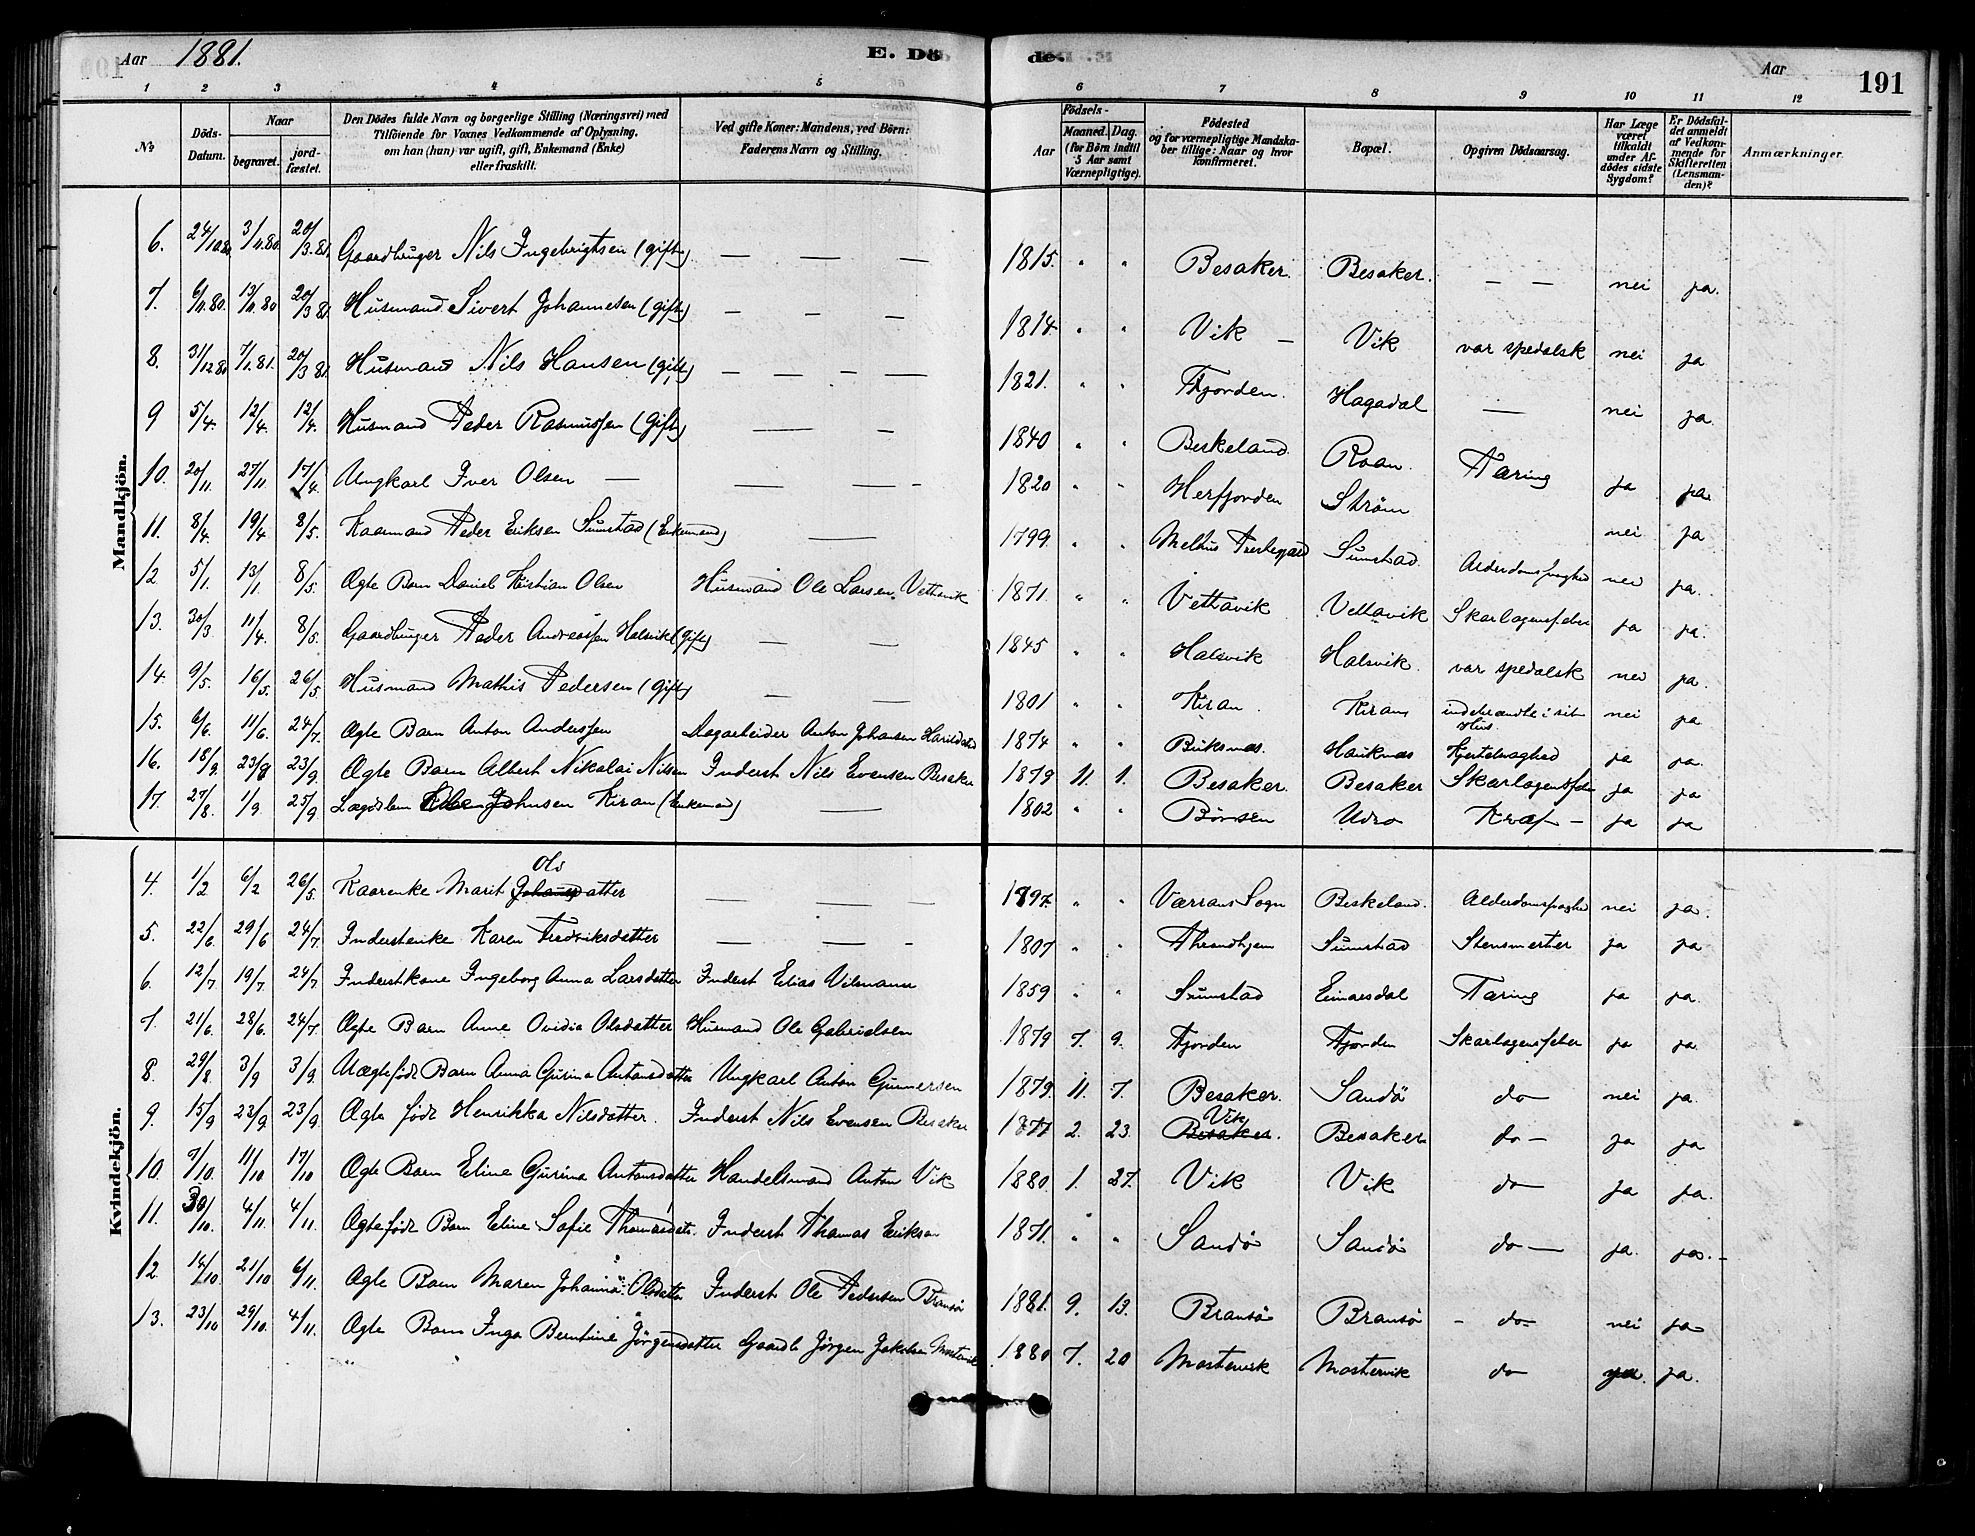 Aar 1881. E. Döde. Aar 191
1 2 3 4 5 6 7 8 9 10 11 12
No
Döds-Datum.
Naar begravet. jordfæstet.
Den Dödes fulde Navn og borgerlige Stilling (Næringsvei) med Tilföiende for Voxnes Vedkommende af Oplysning, om han (hun) var ugift, gift, Enkemand (Enke) eller fraskilt.
Ved gifte Koner: Mandens, ved Börn: Faderens Navn og Stilling.
Födsels-
Aar Maaned. Dag. (for Börn indtil 5 Aar samt Værnepligtige).
Födested og for værnepligtige Mandskaber tillige: Naar og hvor konfirmeret.
Bopæl.
Opgiven Dödsaarsag.
Har Læge været tilkaldt under Afdödes sidste Sygdom?
Er Dödsfaldet anmeldt af Vedkommende for Skifteretten (Lensmanden)?
Anmærkninger.
Mandkjön.
6. 24/10.80 3/11.80 20/3.81. Gaardbruger Nils Ingebrigtsen (gift) — — — 1815. " " Besaker. Besaker. — — nei ja.
7. 6/11.80. 13/11.80 20/3 81. Husmand Sivert Johannesen (gift) — — — 1814 " " Vik — Vik var spedalsk nei ja
8. 31/12 80 7/1.81. 20/3 81. Husmand Nils Hansen (gift) — — — — 1821. " " Fjorden. Hagadal — nei ja
9 5/4. 12/4. 12/4. Husmand Peder Rasmussen (Gift) — — 1840 " " Beskeland. Roan. Tæring ja ja
10. 20/11. 27/11 17/4. Ungkarl Iver Olsen — — — - 1820 " " Herfjorden Strøm nei ja
11. 8/4. 19/4 8/5. Kaarmand Peder Eriksen Sumstad (Enkemand) — 1799. " " Melhus Sumstad. Alderdomssvaghed nei ja.
12 5/1. 13/1 8/5. Ægte Barn Daniel Kristian Olsen Husmand Ole Larsen, Vettavik 1871. " " Vettavik Vettavik Skarlagensfeber ja ja.
13. 30/3. 11/4. 8/5. Gaardbruger Peder Andreassen Halsvik (gift) — — 1845 " " Halsvik Halsvik. var spedalsk nei ja.
14. 9/5. 16/5. 26/5 Husmand Mathis Pedersen (gift) — — 1801 " " Kiran Kiran indebrændte i sit Hus. nei ja
15. 6/6. 11/6. 24/7. Ægte Barn Anton Anderssen Dagarbeider Anton Johansen 1874 " " ja ja.
16. 18/9. 23/8 23/9. Ægte Barn Albert Nikolai Nilsen Inderst Nils Evensen Besaker 1879 11. 1. Besaker. Besaker Skarlagensfeber ja ja
17. 27/8. 1/9 25/9 Lægdslem Johnsen Kiran (Enkemand) — 1802 " " Børsen Udro Kræf — ja ja
Kvindekjön.
4. 1/2 6/2 26/5 Kaarenke Marit Olsdatter — — — 1797. " " Værrans Sogn Beskeland. Alderdomssvaghed nei ja.
5. 22/6. 29/6 24/7. Inderstenke Karen Fredriksdatter — — — 1807 " " Throndhjem Sumstad Stensmerter ja ja
6. 12/7 19/7. 24/7 Inderstkone Ingeborg Anna Larsdatter Inderst Elias Vilsmann 1859 " " Sumstad Einarsdal Tæring ja ja.
7. 21/6. 28/6. 24/7. Ægte Barn Anne Ovidia Olsdatter Husmand Ole Gabrielsen 1879 7. 9. Fjorden Fjorden Skarlagensfeber ja ja.
8. 29/8. 3/9 3/9. Uægtefødt Barn Anna Gurina Antonsdatter Ungkarl Anton Gunnersen 1879. 11. 7. Besaker. Sandö do nei ja.
9. 15/9 23/9 23/9. Ægte født Henrikka Nilsdatter. Inderst Nils Evensen Besaker 1877 2. 23. Vik Besaker. Besaker do — ja ja
10. 7/10. 11/10 17/10 Ægte Barn Eline Gurina Antonsdatter Handelsmand Anton Vik 1880. 1. 27. Vik Vik do ja ja.
11. 30/10. 4/11. 4/11. Ægtefødt Barn Eline Sofie Thomasdatr. Inderst Thomas Eriksen 1871. " " Sandö Sandö do — ja. ja. -
12. 14/10. 21/10 6/11. Ægte Barn Maren Johanna Olsdatter Inderst Ole Pedersen Bransö 1881. 9. 13. Bransö Bransö - do nei ja
13. 23/10 29/10. 4/11. Ægte Barn Inga Berntine Jörgensdatter Gaardb Jörgen Jakobsen Mostervik 1880 7. 20 Mostervik Mostervik do ja. ja.